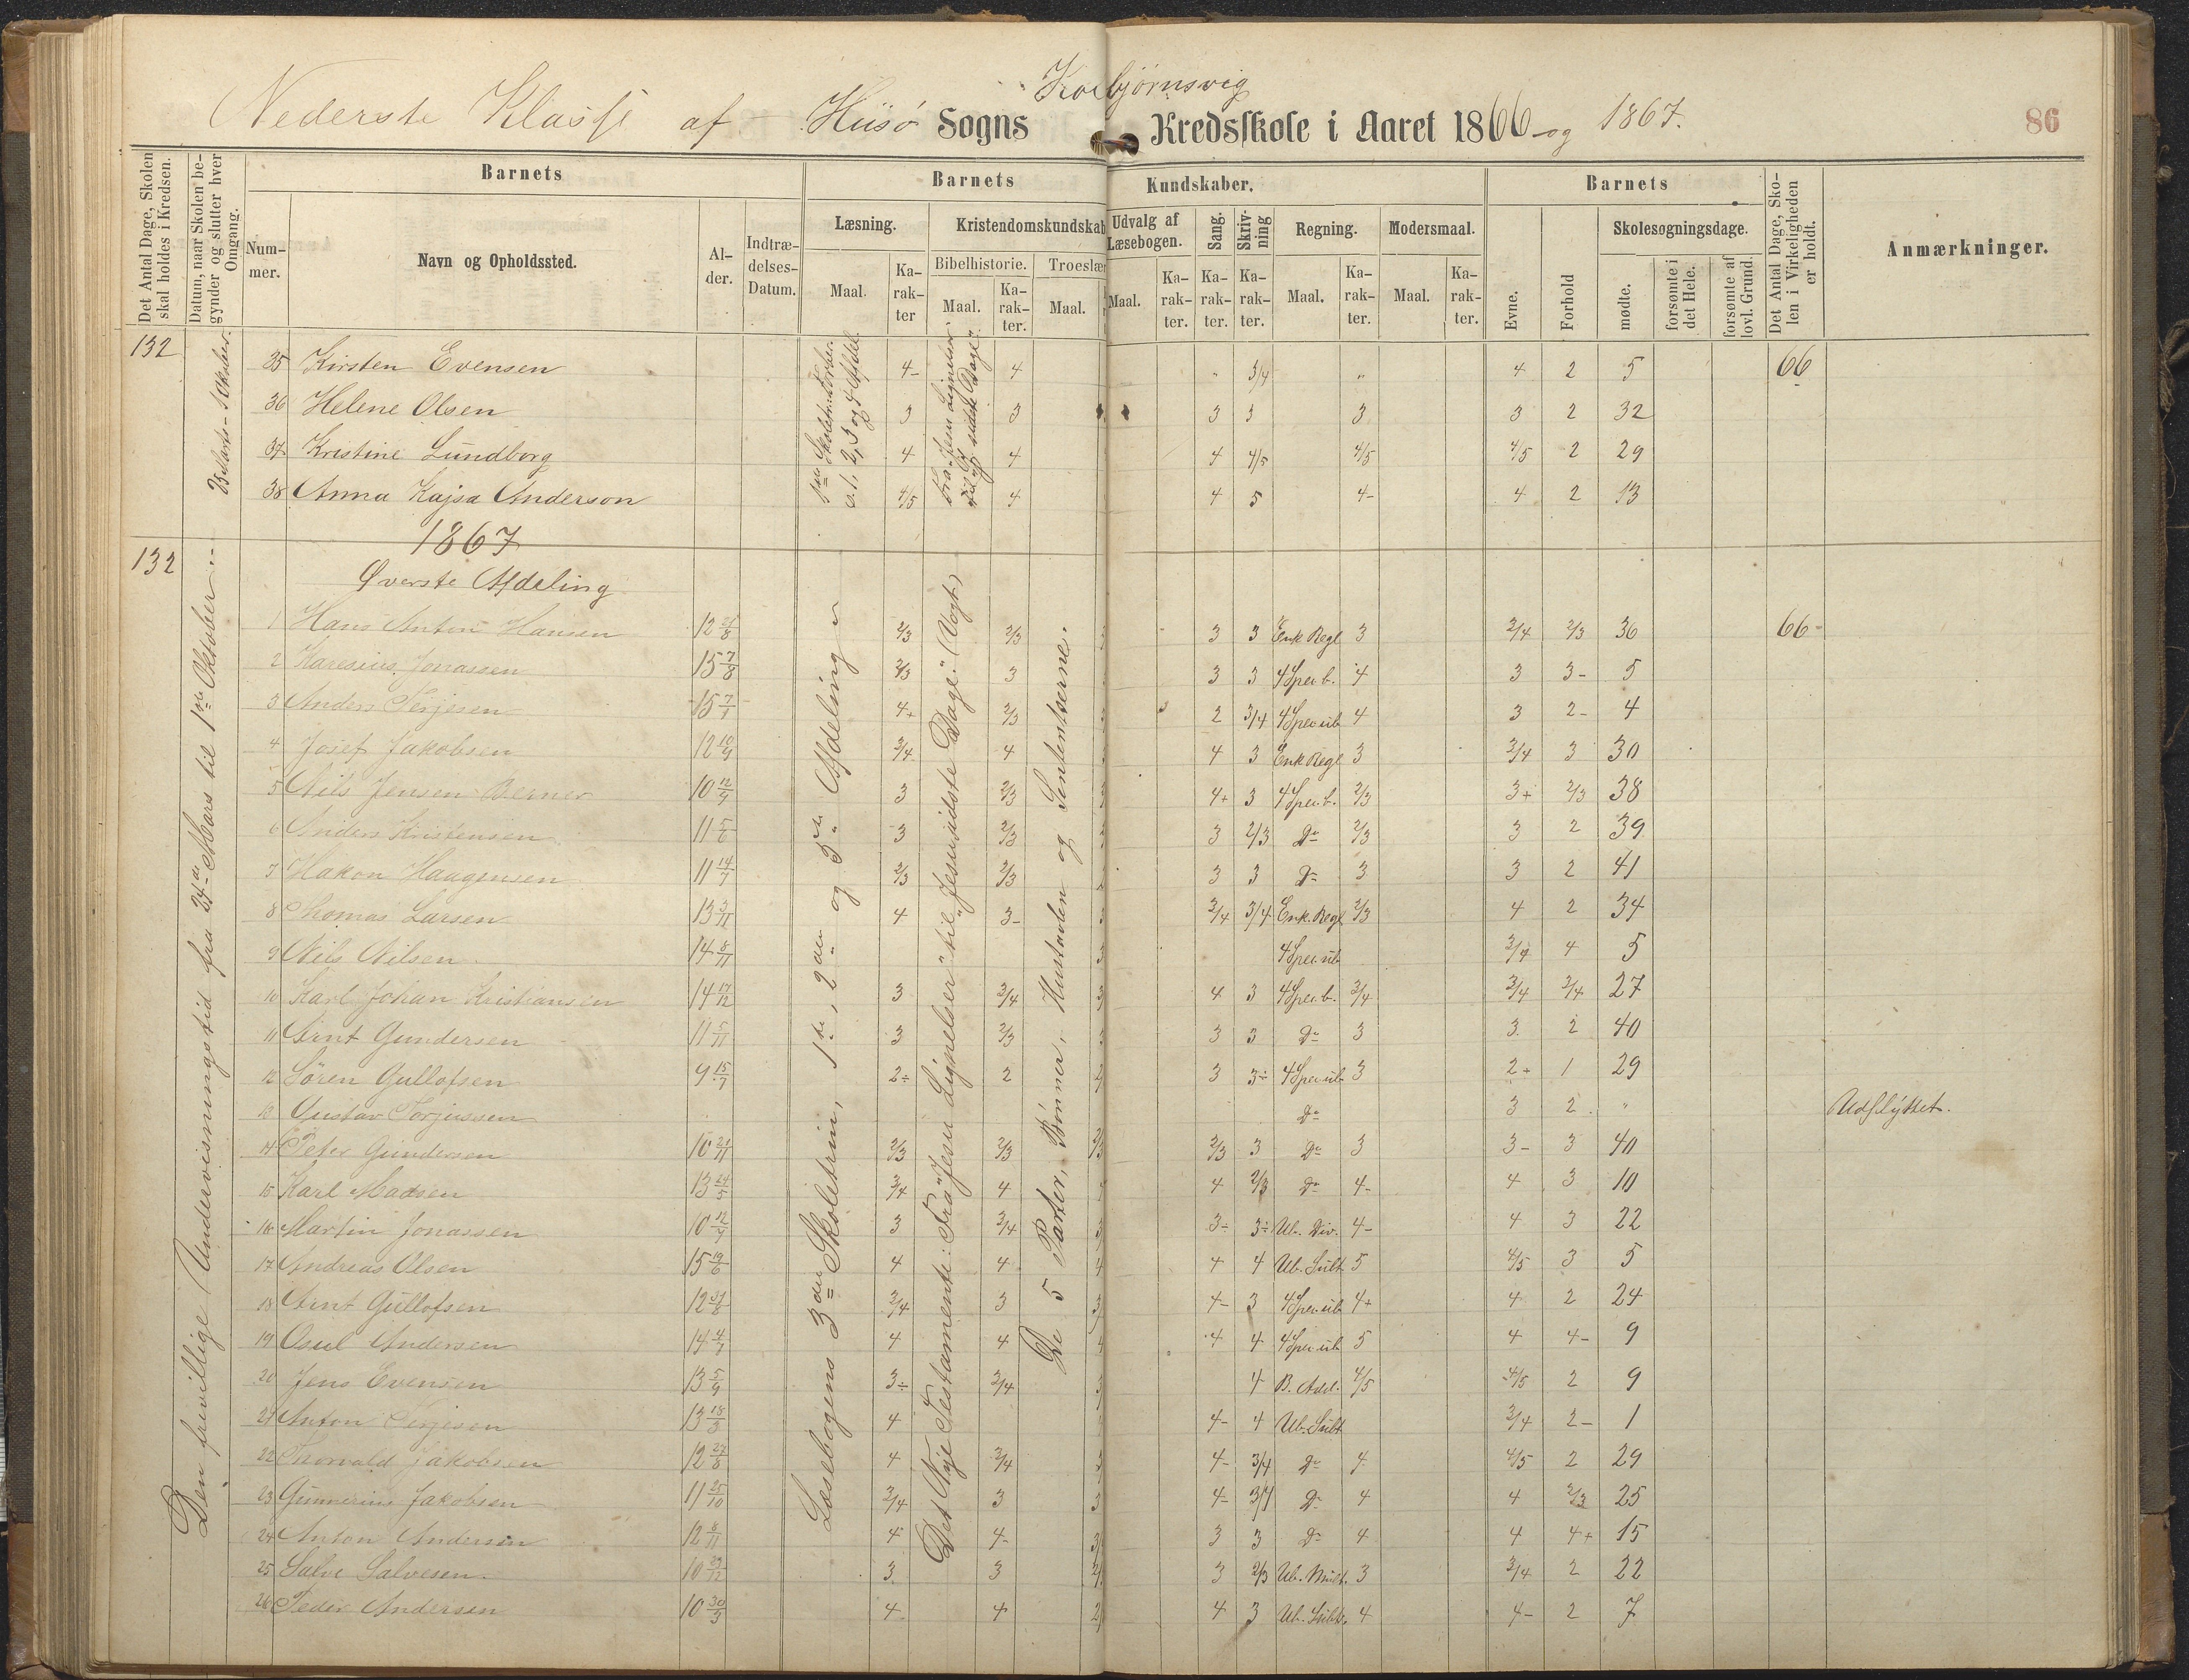 Nederste Klasse af Hiisø Sogns Kolbjørnsvig Kredsskole i Aaret 1866 og 1867.
86
Det Antal Dage, Skolen skal holdes i Kredsen.
Datum, naar Skolen begynder og slutter hver Omgang.
Barnets
Nummer.
Navn og Opholdssted.
Alder.
Indtrædelses-Datum.
Barnets Kundskaber.
Læsning.
Maal.
Karakter
Kristendomskundskab
Bibelhistorie.
Maal.
Karakter.
Troeslær
Maal.
Udvalg af Læsebogen.
Maal.
Karakter.
Sang.
Karakter.
Skrivning
Karakter.
Regning.
Maal.
Karakter.
Modersmaal.
Maal.
Karakter.
Barnets
Evne.
Forhold
Skolesøgningsdage.
mødte.
forsømte i det Hele.
forsømte af lovl. Grund.
Det Antal Dage, Skolen i Virkeligheden er holdt.
Anmærkninger.
132
35 Kirsten Evensen 4- 4 " 3/4 " 4 2 5 66
36 Helene Olsen 3 3 3 3 3 3 2 32
37 Kristine Lundborg 4 4 4 4/5 4/5 4/5 2 29
38 Anna Kajsa Anderson 4/5 4 4 5 4- 4 2 13
1867
132
Øverste Afdeling
Den frivillige Undervisningstid fra 24de Mars til 1ste Oktober
Læsebogens 3die Skoletrin, 1ste, 2den og 3die Afdeling
Det Nye Testamente: Fra "Jesu Lignelser" til "Jesu sidste Dage." (Vogt)
De 5 Parter, Bønner, Hustavlen og Sententserne.
1 Hans Anton Hansen 12 21/8 2/3 2/3 3 3 Enk Regl 3 3/4 2/3 36 66
2 Karesius Jonassen 15 7/8 2/3 3 3 3 4 Spec b. 4 3 3- 5
3 Anders Terjesen 15 7/1 4+ 2/3 2 3/4 4 Spec ub 4 3 2- 4
4 Josef Jakobsen 12 10/9 3/4 4 4 3 Enk Regl 3 3/4 3 30
5 Nils Jensen Berner 10 12/9 3 2/3 4+ 3 4 Spec. b. 2/3 3+ 2/3 38
6 Anders Kristensen 11 5/6 3 2/3 3 2/3 Do 2/3 3 2 39
7 Hakon Haagensen 11 14/7 2/3 2/3 3 3 Do 3 3 2 41
8 Thomas Larsen 13 3/11 4 3- 3/4 3/4 Enk. Regl 2/3 4 2 34
9 Nils Nilsen 14 8/11 4 Spec ub 3/4 4 5
10 Karl Johan Kristiansen 14 17/12 3 3/4 4 3 4 Spec. b. 3/4 3/4 3/4 27
11 Arnt Gundersen 11 5/11 3 2/3 3 3 Do 3 3 2 40
12 Sören Gullofsen 9 15/7 2÷ 2 3 3÷ 4 Spec ub 3 2+ 1 29
13 Gustav Torjussen Do 3 2 " Udflyttet.
14 Peter Gundersen 10 21/11 2/3 2/3 2/3 3 Do 3 3- 3 40
15 Karl Madsen 13 24/5 3/4 4 4 2/3 Do 4- 4 3 10
16 Martin Jonassen 10 12/9 3 3/4 3÷ 3÷ Ub. Div. 4- 4 3 22
17 Andreas Olsen 15 19/6 4 4 4 4 Ub. Subt 5 4/5 3 5
18 Arnt Gullofsen 12 31/8 3/4 3 4- 3 4 Spec ub 4+ 4 2 24
19 Osul Andersen 14 4/7 4 4 4 4 4 Spec ub 5 4 4- 9
20 Jens Evensen 13 5/9 3÷ 3/4 4 B. Add. 4/5 4/5 2 9
21 Anton Terjesen 13 18/3 4 4- 4 Ub. Subt 3/4 2- 1
22 Thorvald Jakobsen 12 27/8 4 3/4 4- 3/4 Do 4 4/5 2 29
23 Gunnerius Jakobsen 11 25/10 3/4 3 4- 3/4 Do 4 4 2/3 25
24 Anton Andersen 12 8/11 4 4- 3 3 Do 4 4 4+ 15
25 Salve Salvesen 10 29/12 3 3 3 2/3 Ub. Mult. 3 3/4 2 22
26 Peder Andersen 10 30/5 4 4 4 3 Ub. Subt. 4 4- 2 7